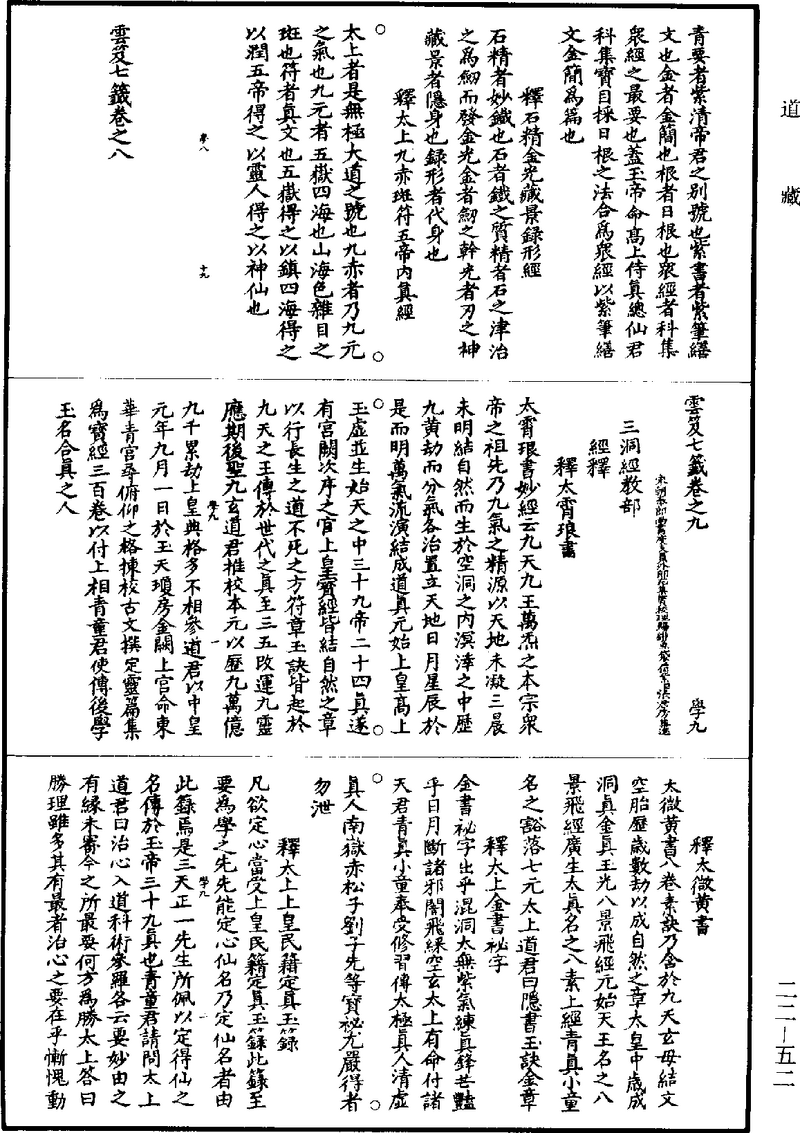 道藏
青要者紫清帝君之別號也紫書者紫筆繕
文也金者金簡也根者日根也衆經者科集
衆經之最要也蓋玉帝命高上侍真總仙君
科集寶目採日根之法合爲衆經以紫筆繕
文金簡爲篇也
釋石精金光藏景録形經
石精者妙鐵也石者鐵之質精者石之津治
之爲劒而發金光金者劒之幹光者刃之神
藏景者隱身也録形者代身也
釋太上九赤班符五帝内真經
太上者是無極大道之號也九赤者乃九元
之氣也九元者五嶽四海也山海色雜日之
班也符者真文也五嶽得之以鎮四海得之
以潤五帝得之以靈人得之以神仙也
學八 十九
雲笈七籤卷之八
雲笈七籤卷之九 學九
三洞經教部
經釋
釋太霄琅書
太霄琅書妙經云九天九王萬炁之本宗衆
帝之祖先乃九氣之精源以天地未凝三晨
未明結自然而生於空洞之内溟涬之中歴
九黄劫而分氣各治置立天地日月星辰於
是而明萬氣流演結成道真元始上皇高上
玉虚並生始天之中三十九帝二十四真遂
有宮闕次序之官上皇寶經皆結自然之章
以行長生之道不死之方符章玉訣皆起於
九天之王傳於世代之真至三五改運九靈
應期後聖九玄道君推校本元以歴九萬億
學九 一
九千累劫上皇典格多不相參道君以中皇
元年九月一日於玉天瓊房金闕上宮命東
華青宮尋俯仰之格揀校古文撰定靈篇集
爲寶經三百卷以付上相青童君使傳後學
玉名合真之人
釋太微黄書
太微黄書八卷素訣乃含於九天玄母結文
空胎歴歲數劫以成自然之章太皇中歲成
洞真金真玉光八景飛經元始天王名之八
景飛經廣生太真名之八素上經青真小童
名之豁落七元太上道君曰隱書玉訣金章
釋太上金書祕字
金書祕字出乎混洞太無紫氣練真鋒芒豔
乎日月斷諸邪闇飛緑空玄太上有命付諸
天君青真小童奉受修習傳太極真人清虚
真人南嶽赤松子劉子先等寶祕尤嚴得者
勿泄
釋太上上皇民籍定真玉籙
凡欲定心當受上皇民籍定真玉籙此籙至
要爲學之先先能定心仙名乃定仙名者由
學九 二
此籙焉是三天正一先生所佩以定得仙之
名傳於玉帝三十九真也青童君請問太上
道君曰治心入道科術參羅各云要妙由之
有縁未審今之所最要何方爲勝太上答曰
勝理雖多其有最者治心之要在乎慚愧動
二二—五二